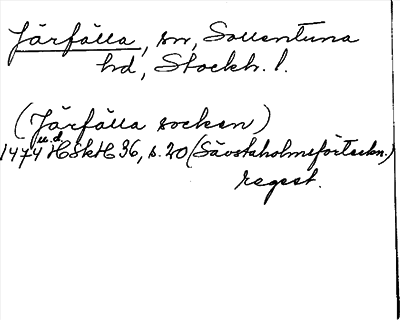 Järfälla, sn, Sollentuna
hd, Stockh. l.
(Järfälla socken)
u.d.
1474 HSkH 36, s. 20 (Sävstaholmsförteckn.)
regest.